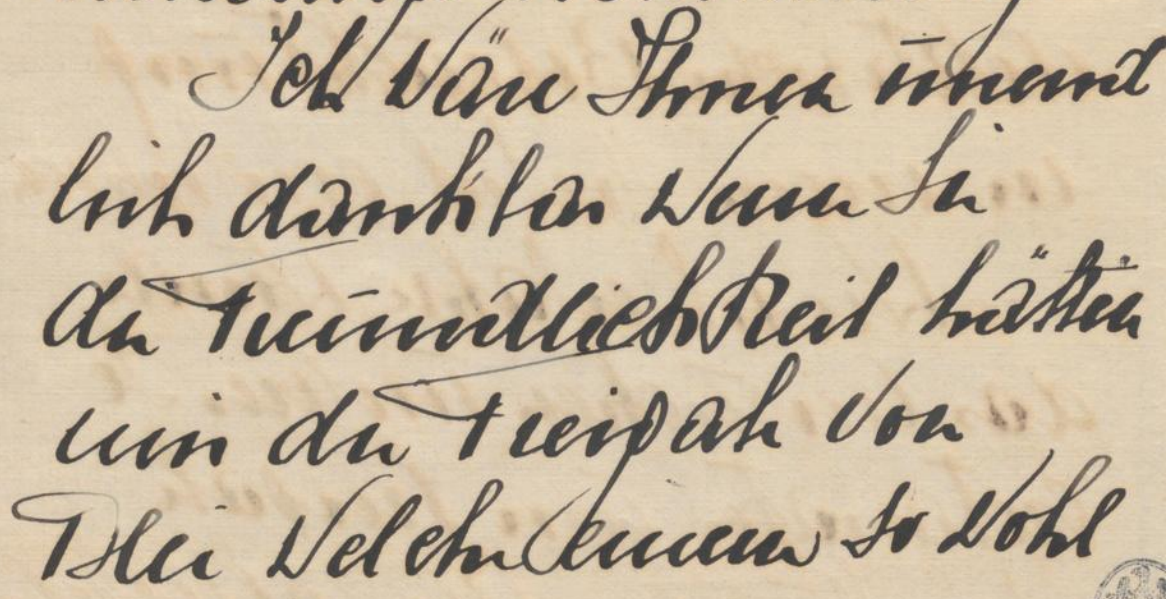 Ich wäre Ihnen unend
lich dankbar wenn Sie
die Freundlichkeit hätten
mir die Freigabe von
Blei welche so wohl